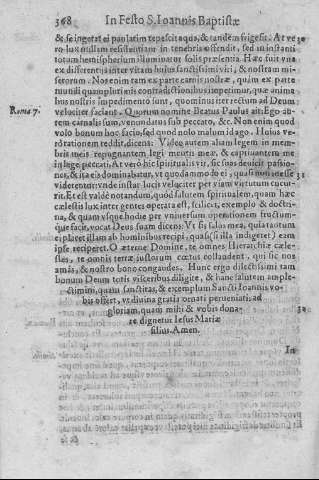 368 In Festo S. Ioannis Baptistæ
& se ingerat ei paulatim tepescit aqua, & tandem frigescit. At ve
ro lux nullam resistentiam in tenebris offendit, sed in instanti
totum hemispherium illuminatur solis præsentia. Hæc fuit vna
ex differentiis inter vitam huius sanctissimi viri, & nostram mi-
serorum. Nos enim tam ex parte carnis nostræ, quàm ex parte
mundi quamplurimis contradictionibus impetimur, quæ anima
bus nostris impedimento sunt, quominus iter rectum ad Deum
velociter faciant. Quorum nomine Beatus Paulus ait: Ego ab-
Roma 7. tem carnalis sum, venundatus sub peccato, &c. Non enim quod
volo bonum hoc facio, sed quod nolo malum id ago. Huius ve-
rò rationem reddit, dicens: Video autem aliam legem in mem-
bris meis repugnantem legi mentis meæ, & captiuantem me
in lege peccati. At verò hic spiritualis vir, sic suas deuicit passio-
nes, & ita eis dominabatur, vt quodammodo ei, quasi non inesse
viderentur: vnde instar lucis velociter per viam virtutum cucur-
rit. Et est valde notandum, quòd salutem spiritualem, quam hæc
cælestis lux inter gentes operata est, scilicet, exemplo & doctri-
na, & quam vsque hodie per vniuersum operationem fructum-
que facit, vocat Deus suam dicens. Vt sis salus mea, quia tantum
ei placet illam ab hominibus recipi, quasi si illa indigeret, eam
ipse reciperet. O æterne Domine, te omnes Hierarchiæ cæle-
stes, te omnis terræ iustorum cœtus collaudent, qui sic nos
amas, & nostro bono congaudes. Hunc ergo dilectissimi tam
bonum Deum totis visceribus diligite, & hanc salutem ample-
ctimini, quam sanctitas, & exemplum Sancti Ioannis vo-
bis offert, vt diuina gratia ornati perueniatis ad
gloriam, quam mihi & vobis dona-
re dignetur Iesus Mariæ
filius. Amen.
In